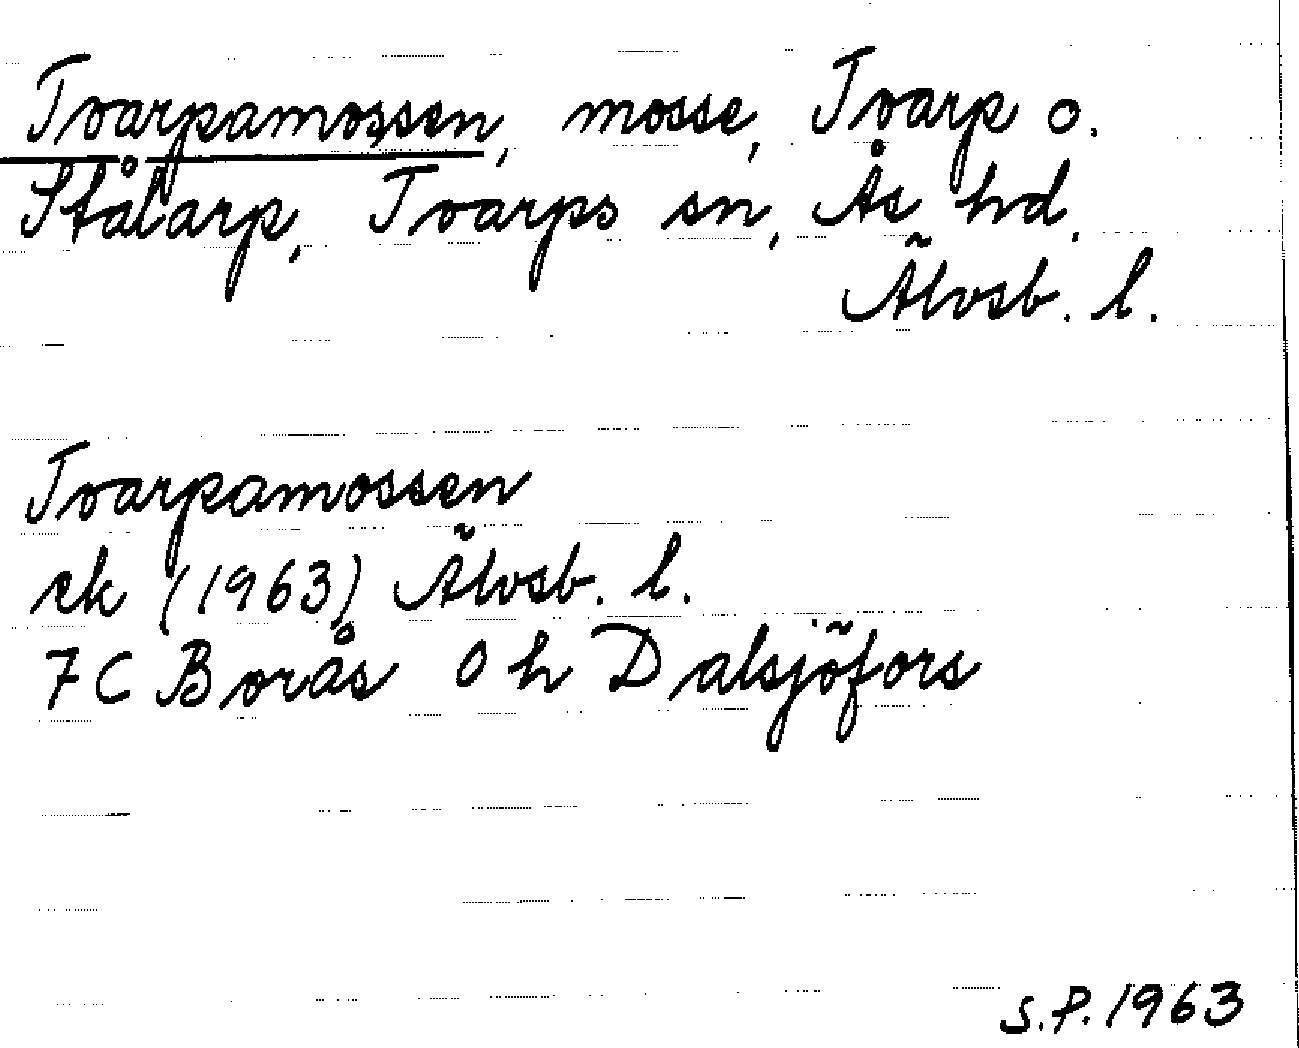 Tvarpamossen, mosse, Tvarp o.
Stålarp, Tvarps sn, Ås hd.
Älvsb. l.
Tvarpamossen
ek (1963) Älvsb. l.
7C Borås 0h Dalsjöfors
S.P. 1963